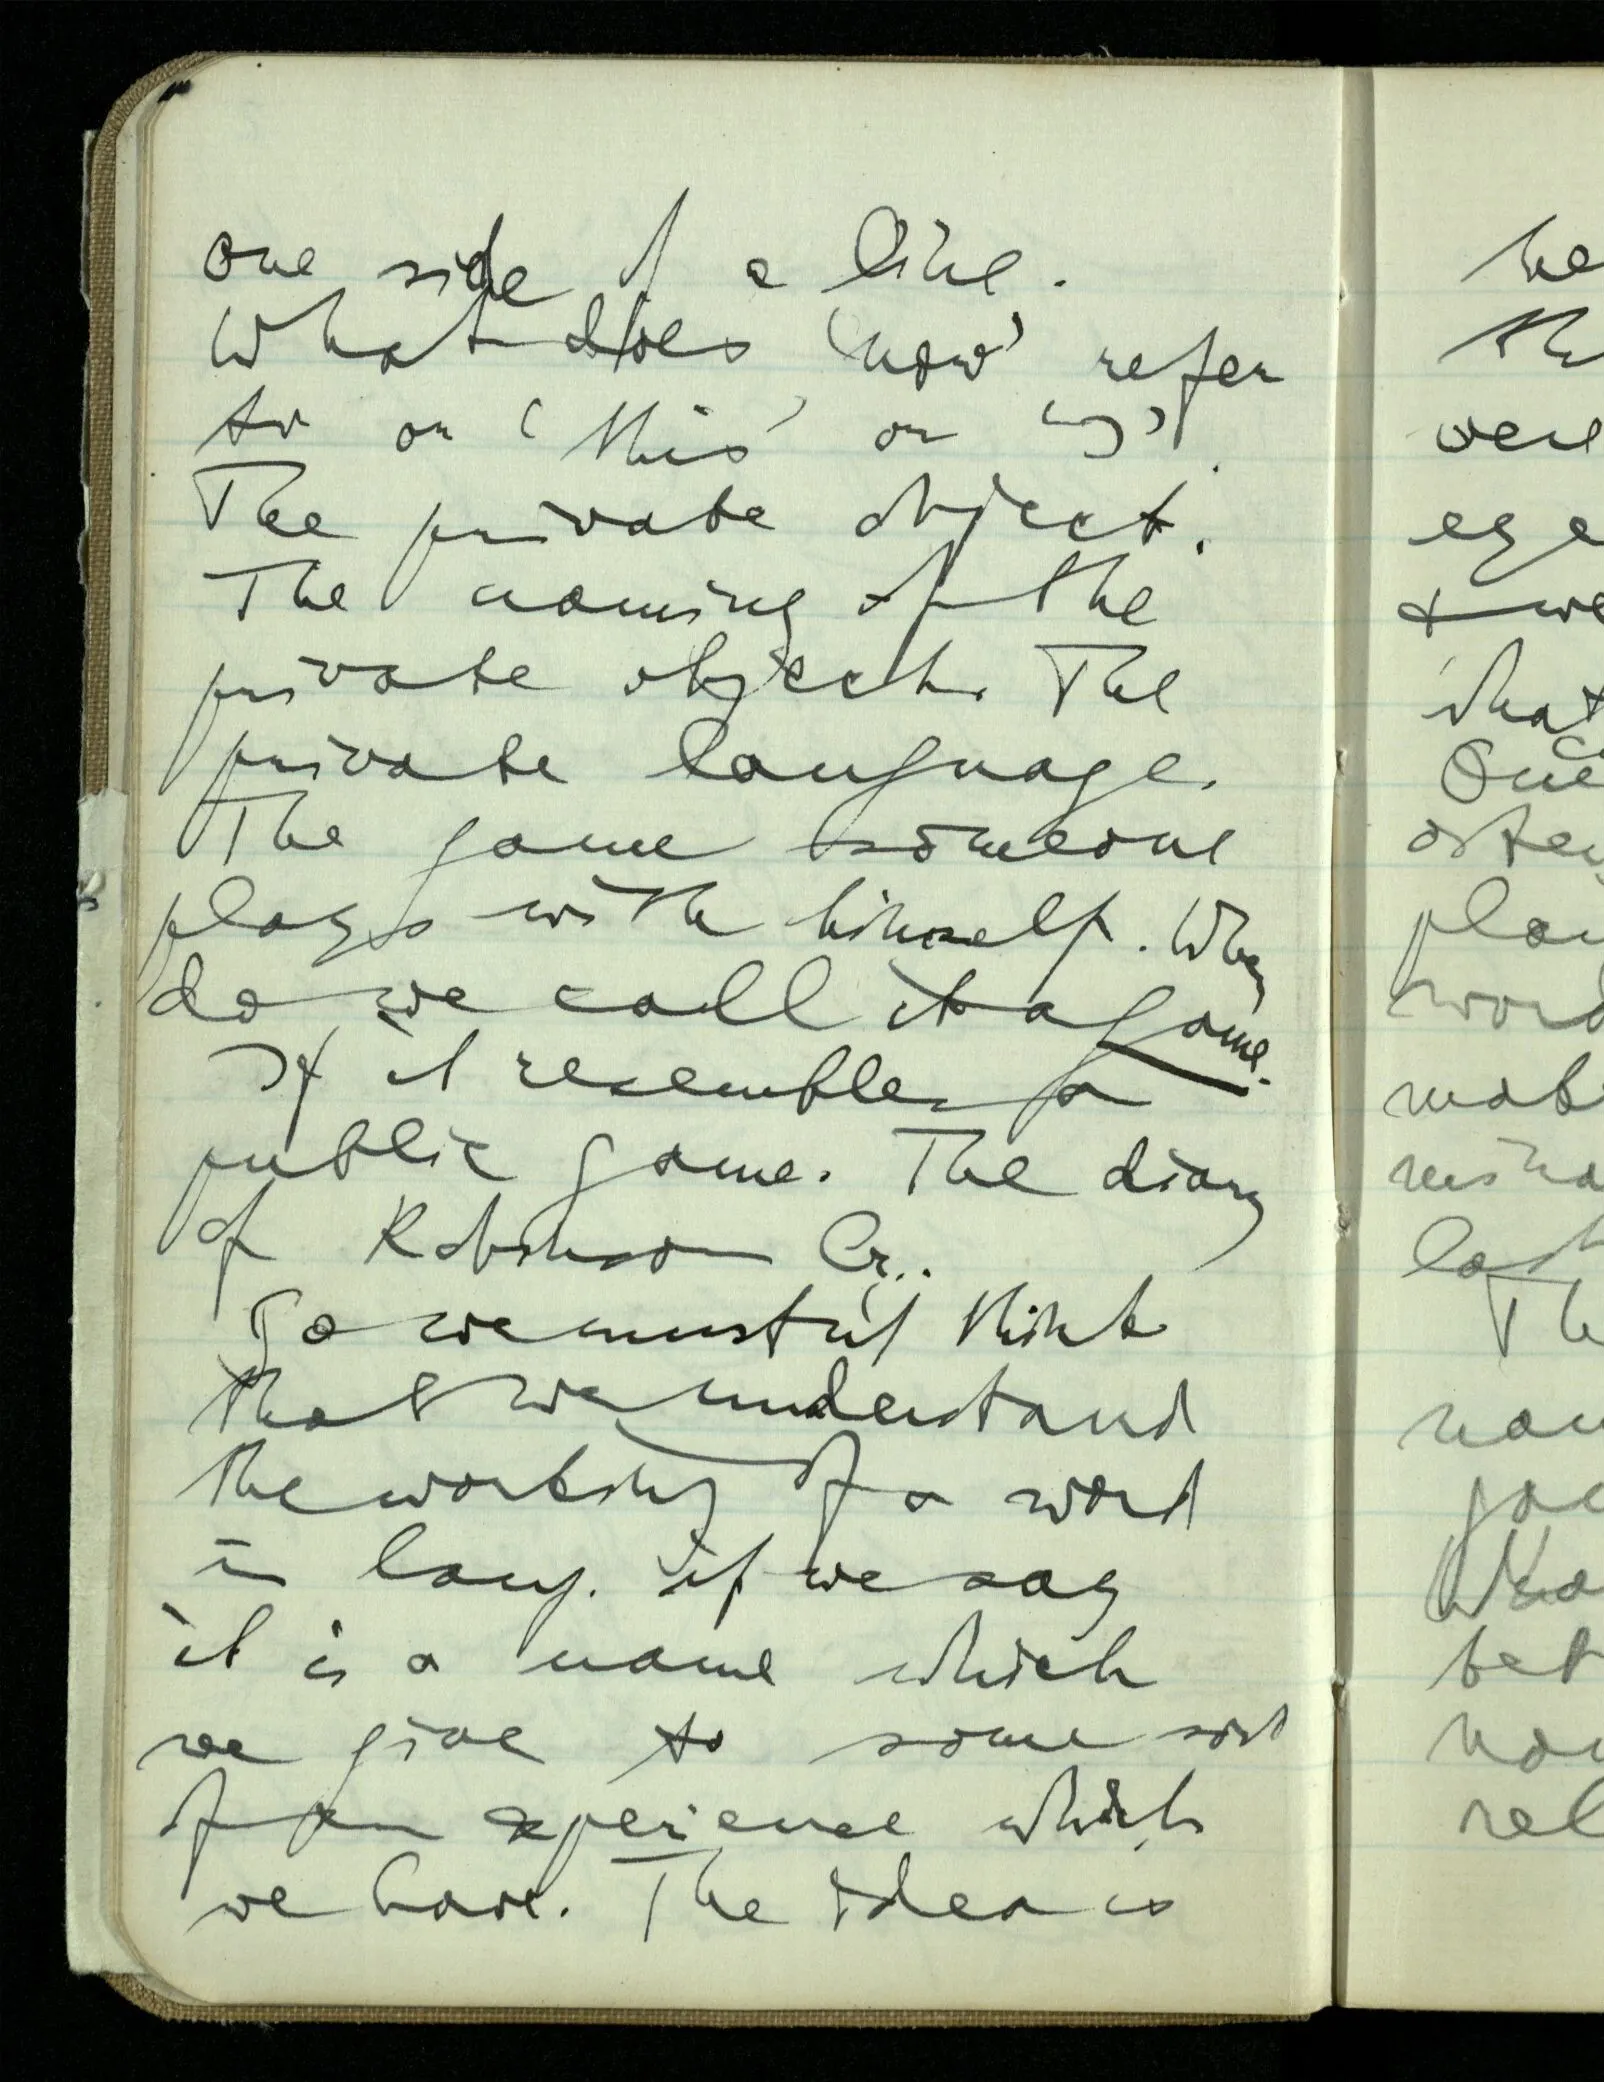 one side of a line.
What does 'now' refer
to or 'this' or 'I'.
The private object.
The naming of the
private object. The
private language.
The game someone
plays with himself. When
do we call it a game.
If it resembles a
public game. The diary
of Robinson Cr..
So we mustn't think
that we understand
the working of a word
in lang. if we say
it is a name which
we give to some sort
of an experience which
we have. The idea is
he
th
were
eye
& we
what
One
osten
play
word
make
Th